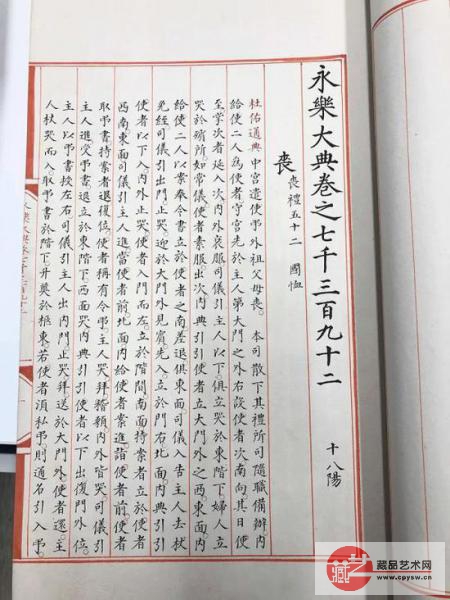 永樂大典卷之七千三百九十二 十八陽
喪 喪禮五十二 國恤
杜佑通典中宮遣使弔外祖父母喪。 本司散下其禮所司隨職備辦内
給使二人為使者守宮先於主人第大門之外右設使者次南向其日使
至掌次者延入次内外衰服司儀引主人以下俱立哭於東階下婦人立
哭於殯所如常儀使者素服出次内典引引使者立大門外之西東面内
給使二人以案奉令書立於使者之南差退俱東面司儀入告主人去杖
免絰司儀引出門止哭迎於大門外見賓先入立於門右北面内典引引
使者以下入内外止哭使者入門而左立於階間南面持案者立於使者
西南東面司儀引主人進當使者前北面内給使者案進詣使者前使者
取弔書持案者退復位使者稱有令弔主人哭拜稽顙内外皆哭司儀引
主人進受弔書退立於東階下西面哭内典引引使者以下出復門外位
主人以弔書授左右司儀引主人出内門止哭拜送於大門外使者還主
人杖哭而入取弔書於階下升奠於柩東若使者須私弔則通名引入弔
藏品艺术网
www.cpysw.cn